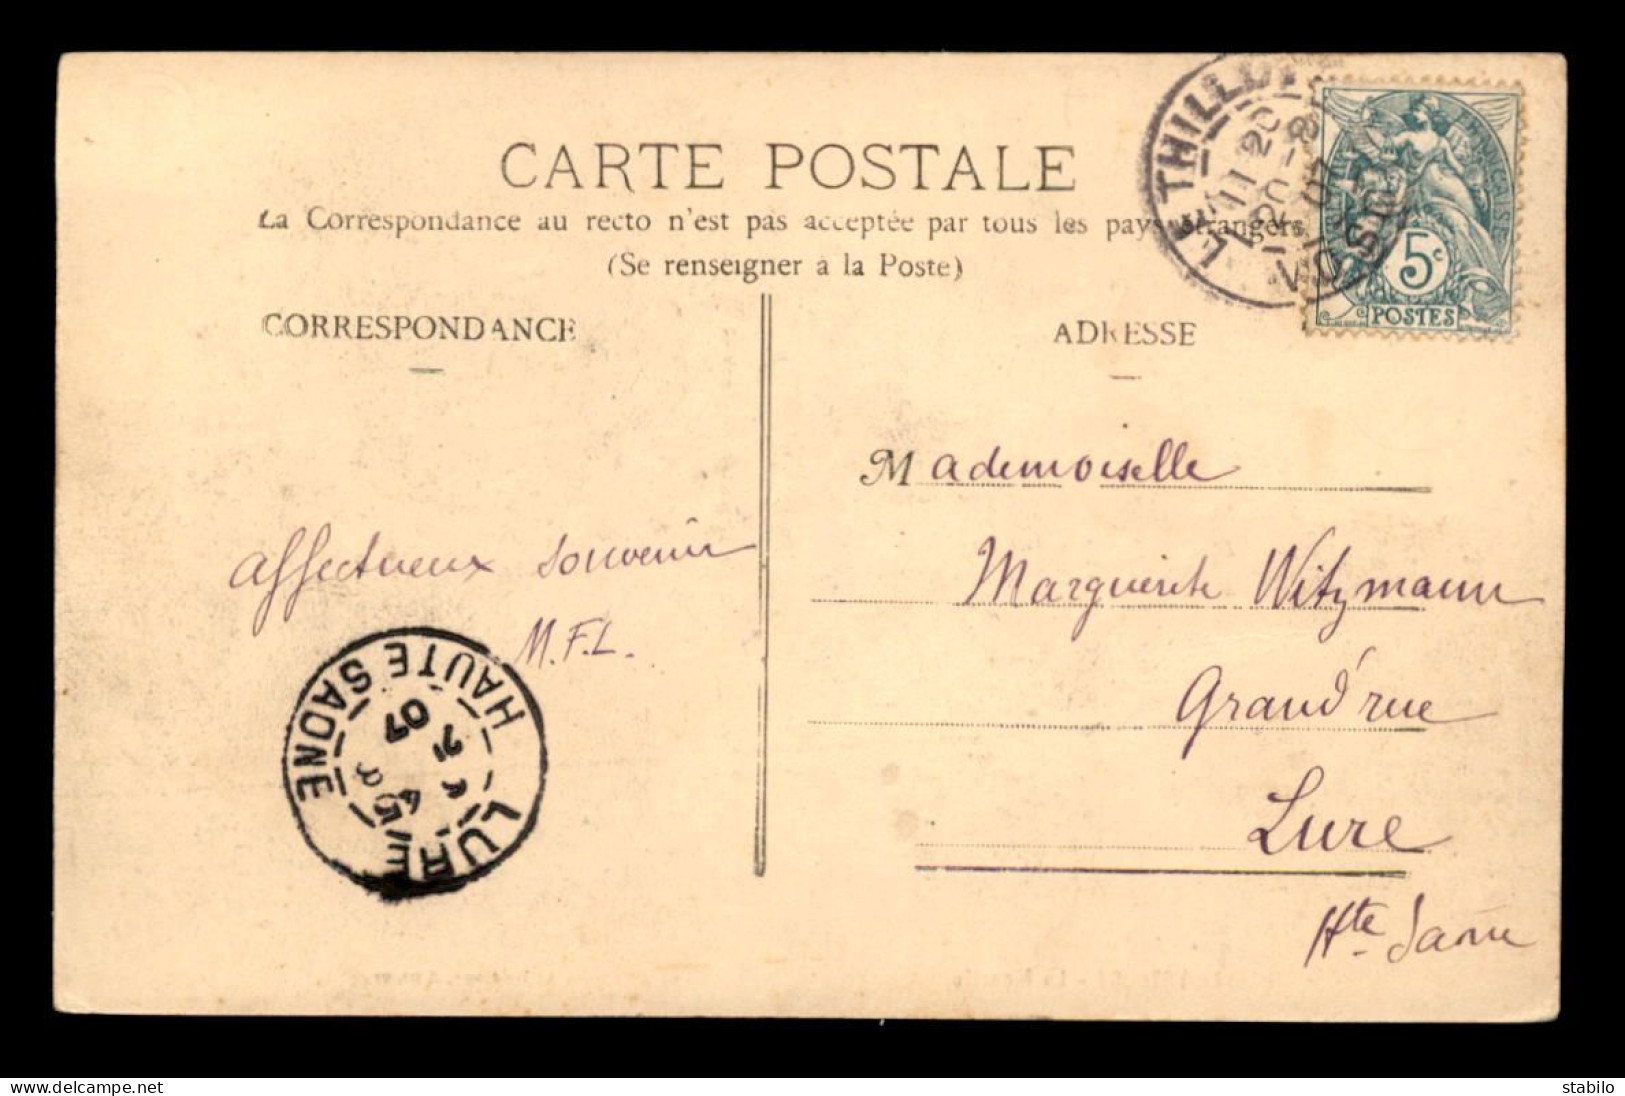 CARTE POSTALE
La Correspondance au recto n'est pas acceptée par tous les pays étrangers
(Se renseigner à la Poste)
CORRESPONDANCE
ADRESSE
LE THILLOT
VOSGES
5c
POSTES
Affectueux souvenir
M.F.L.
Mademoiselle
Marguerite Witzmann
Grand'rue
Lure
Hte Saône
LURE
HAUTE SAONE
07
delcampe.net
stabilo